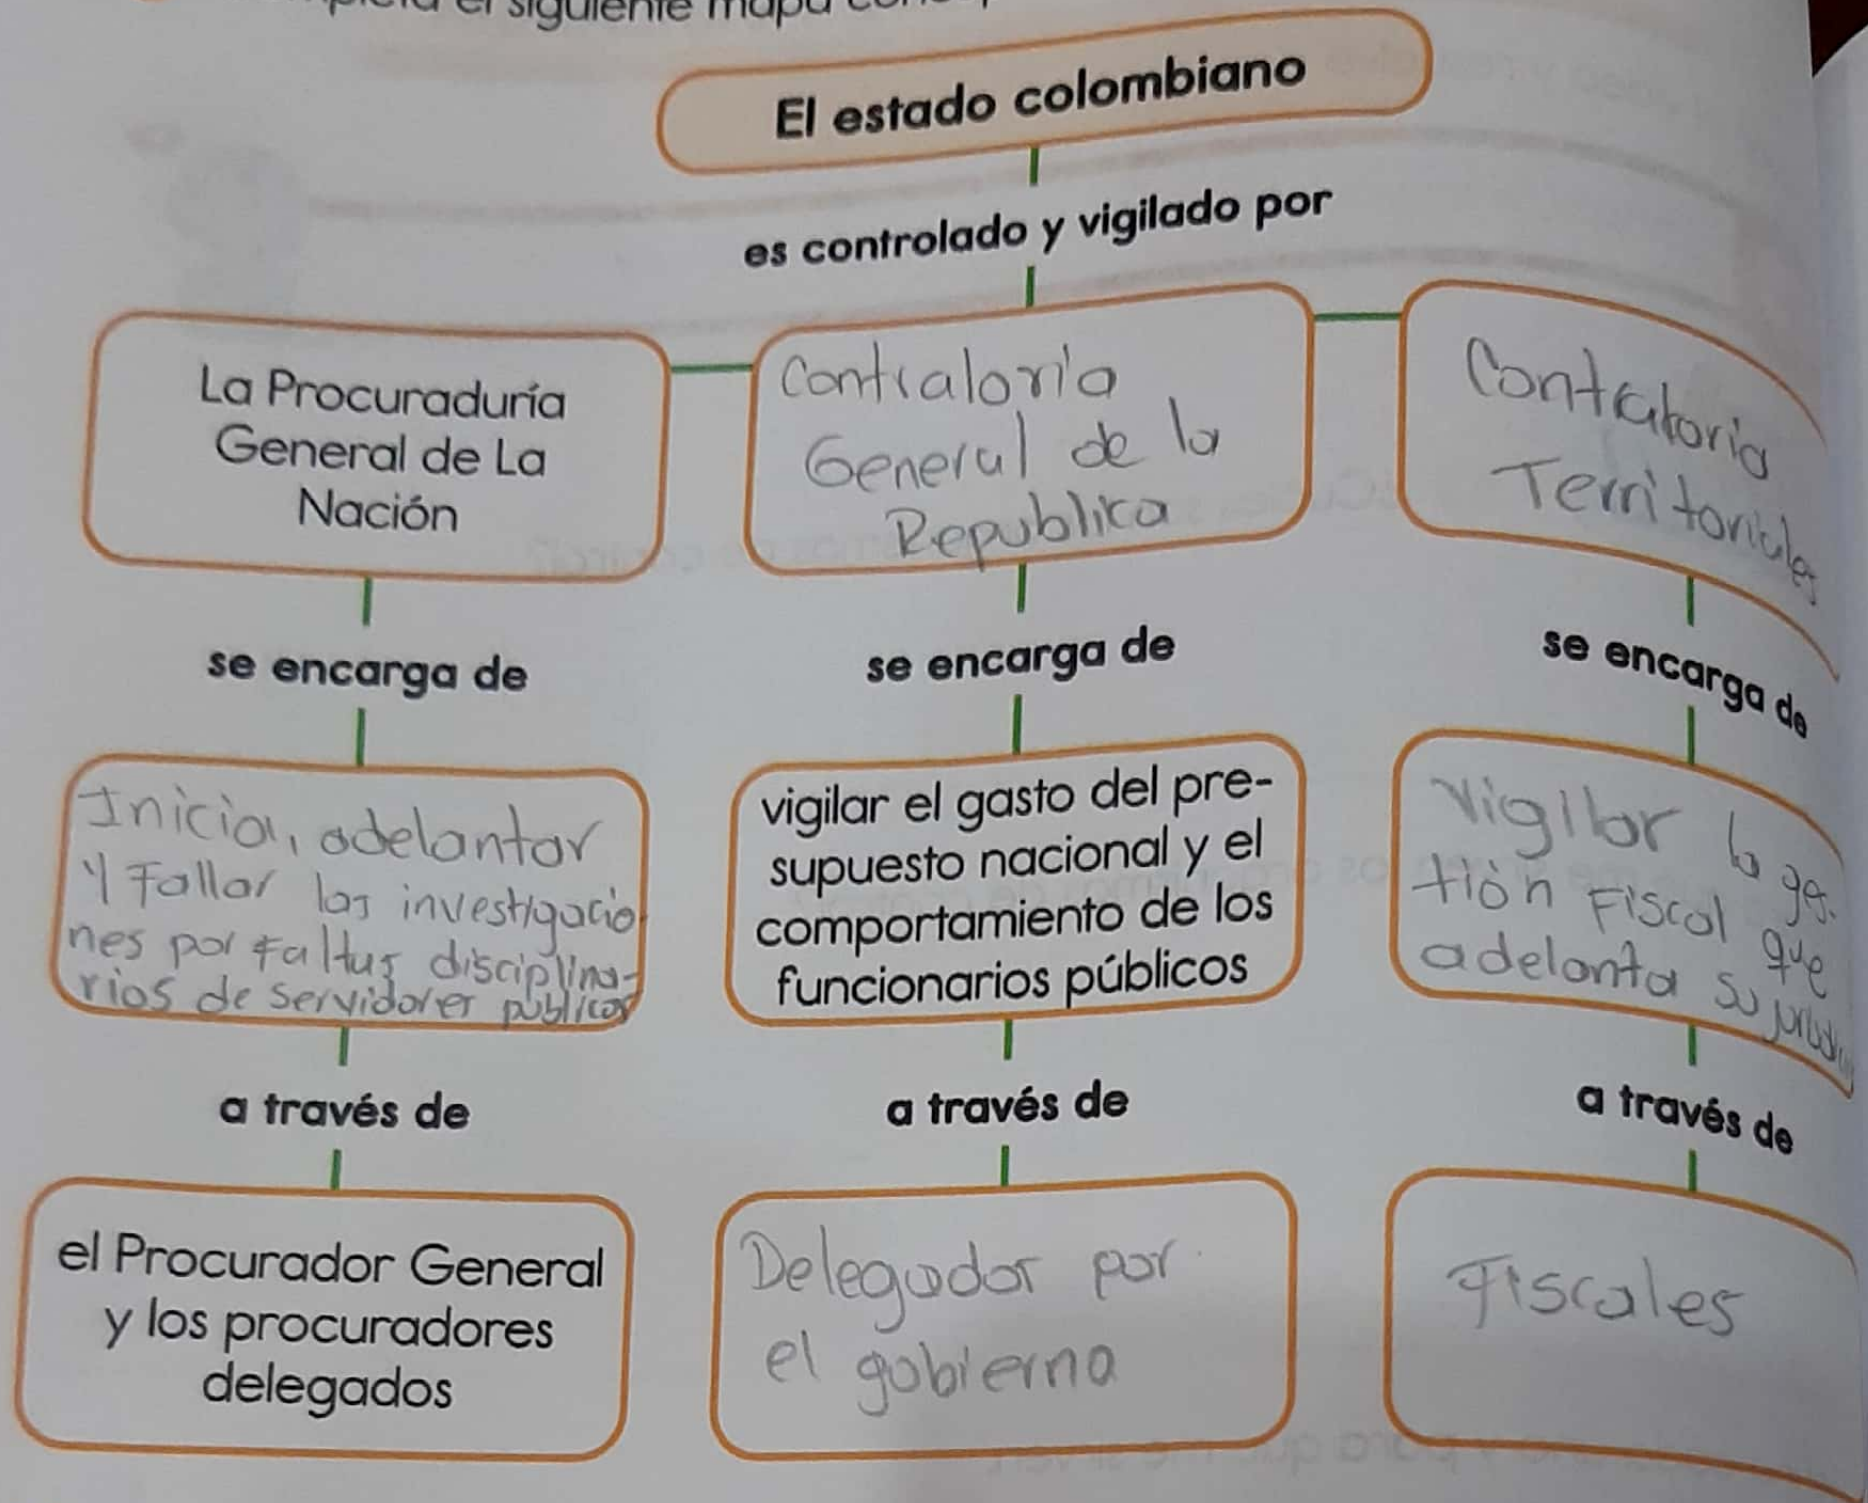 el siguiente mapa
El estado colombiano
es controlado y vigilado por
La Procuraduría
General de La
Nación
Contraloria
General de la
Republica
Contraloria
Territoriales
se encarga de
se encarga de
se encarga de
Inicia, adelantar
y Fallar las investigacio
nes por faltas disciplina-
rios de servidores públicos
vigilar el gasto del pre-
supuesto nacional y el
comportamiento de los
funcionarios públicos
Vigilar la ges-
tión Fiscal que
adelanta su
a través de
a través de
a través de
el Procurador General
y los procuradores
delegados
Delegador por
el gobierno
Fiscales